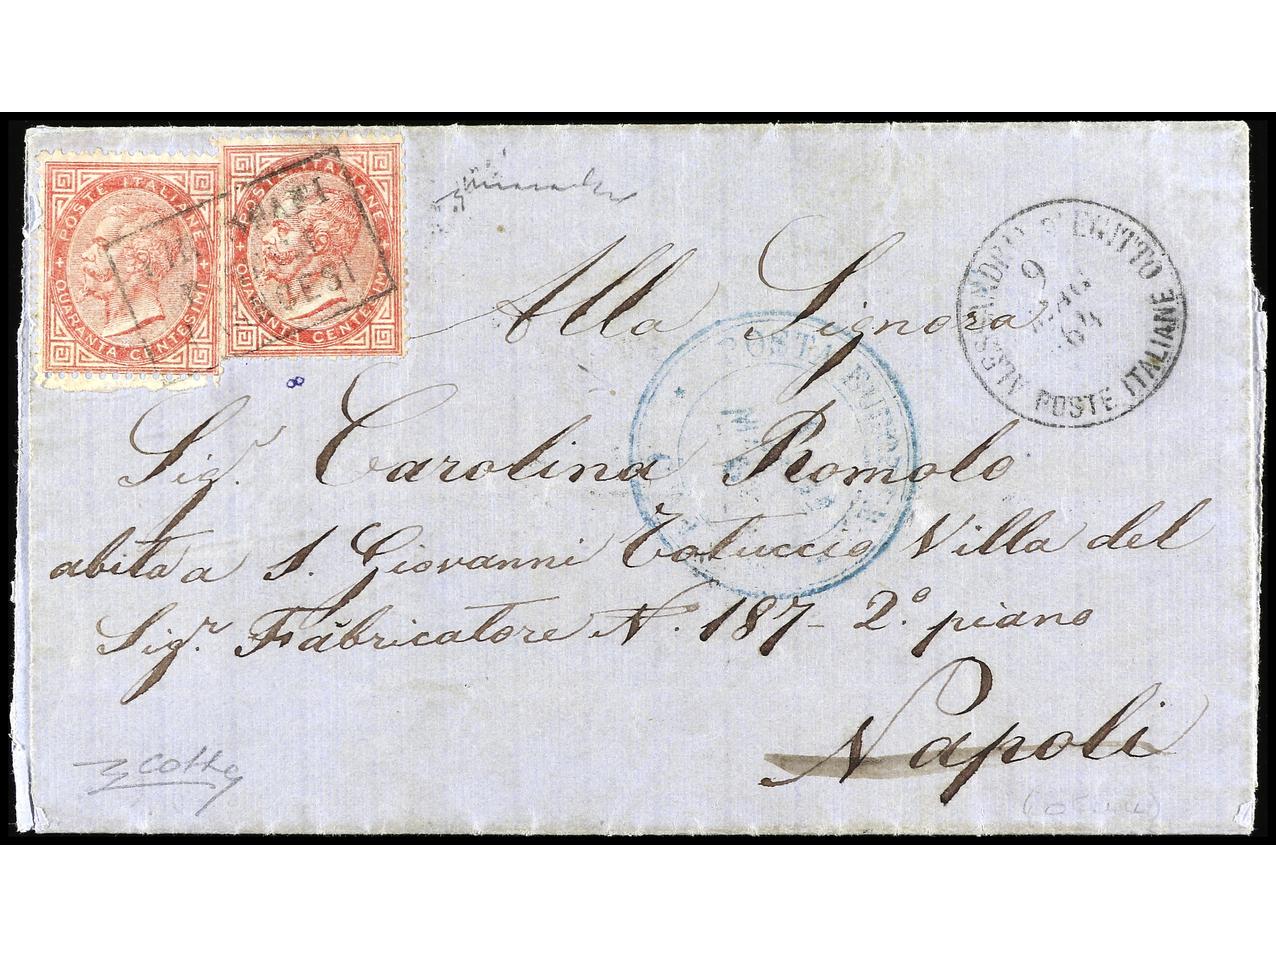 POSTE ITALIANE
QUARANTA CENTESIMI
POSTE ITALIANE
QUARANTA CENTESIMI
ALESSANDRIA D'EGITTO
9
MAG
64
POSTE ITALIANE
POSTA EUROPEA
Alla Signora
Sig.ª Carolina Romolo
abita a S. Giovanni Totuccio Villa del
Sig.r Fabricatore N. 187 - 2.° piano
Napoli
8